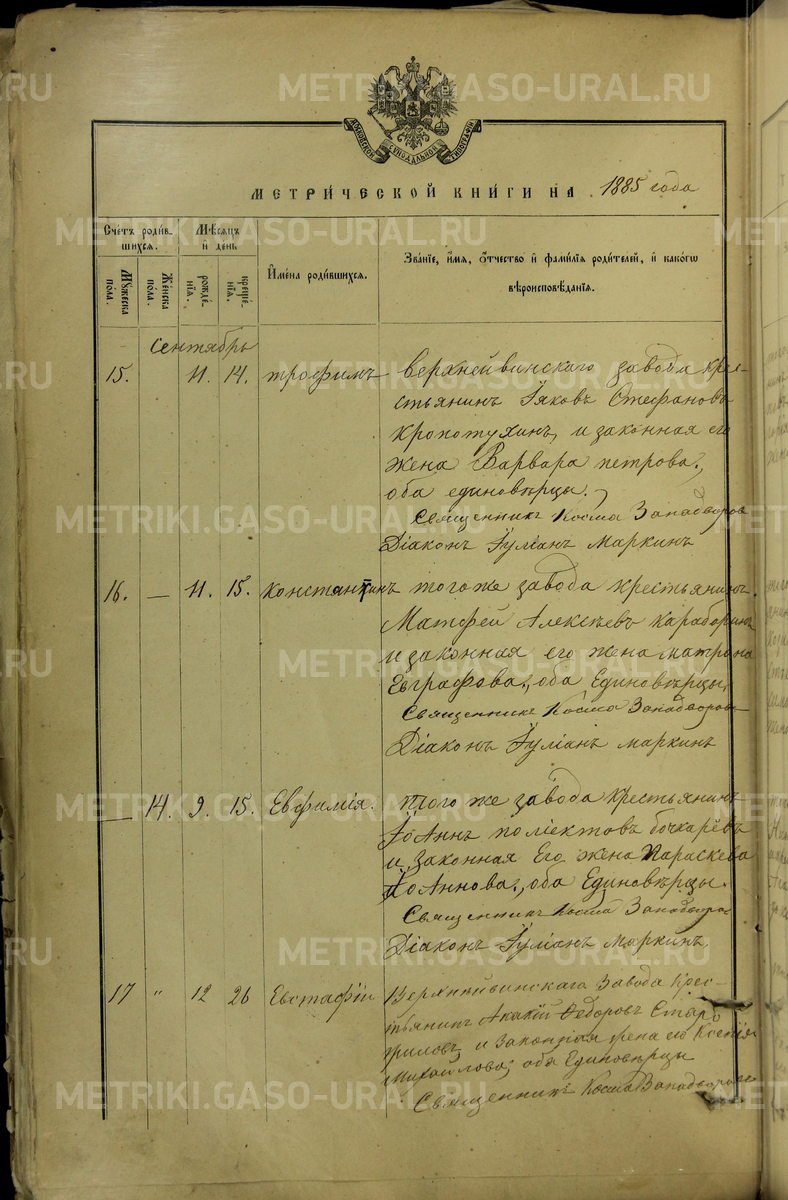 METRIKI.GASO-URAL.RU
МОСКОВСКОЙ СѴНОДАЛЬНОЙ ТИПОГРАФІИ
МЕТРИ́ЧЕСКОЙ КНИ́ГИ НА 1885 года
Сче́тъ роди́вшихсѧ.
Мꙋ́жеска по́ла.
Же́нска по́ла.
Мѣ́сѧцъ и҆ день
рожде́нїѧ.
креще́нїѧ.
И҆мена̀ роди́вшихсѧ.
Зва́нїе, и҆́мѧ, ѻ҆́тчество и҆ фами́лїѧ роди́телей, и҆ како́гѡ
вѣроисповѣ́данїѧ.
сентябрь
15. 11. 14. трофимъ верхнейвинскаго завода кре-
стьянинъ Іяковъ Стефановъ
Кропотухинъ, и законная его
жена Варвара петрова.,
оба единовѣрцы.
Священникъ Косма Западворов
Діаконъ Іуліанъ Маркинъ
16. — 11. 15. константинъ тогоже завода крестьянинъ
Матфей Алексѣевъ
и законная его жена матрона
Евграфова., оба Единовѣрцы,
Священникъ Косма Западворовъ
Діаконъ Іуліанъ маркинъ
— 14. 9. 15. Евфимія. того же завода крестьянинъ
Іоаннъ поліектовъ бочкаревъ
и законная Его жена Параскева
Іоаннова., оба Единовѣрцы.
Священникъ Косма Западворов
Діаконъ Іуліанъ Маркинъ,
17 " 12 26 Евстафій Верхнейвинскаго Завода Крес-
тьянинъ Акакій Ѳедоровъ
и Законная жена его Ксенія
Михайлова; оба Единовѣрцы
Священникъ Косма Западворовъ